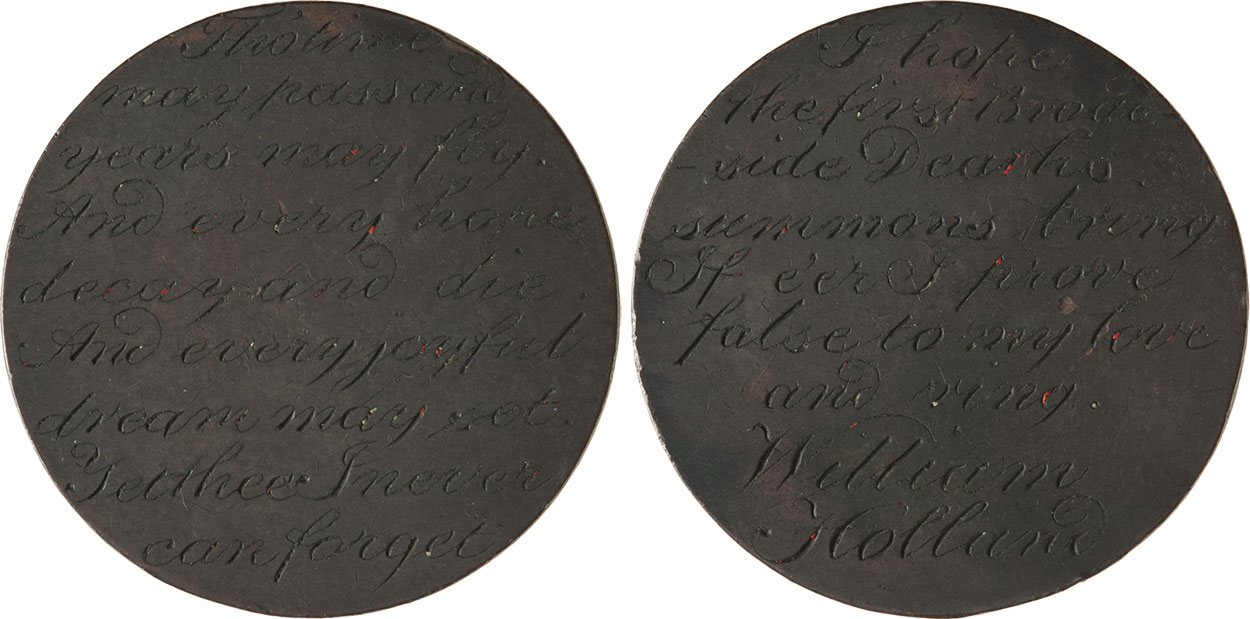 Tho time
may pass and
years may fly.
And every hope
decay and die.
And every joyful
dream may set.
Yet thee I never
can forget
I hope
the first Broad-
-side Deaths
summons bring
If e'er I prove
false to my love
and ring.
William
Holland